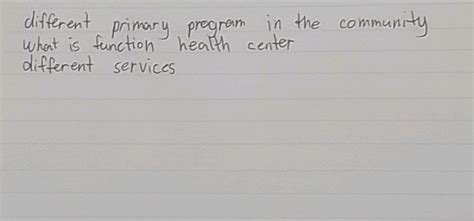 different primary program in the community
what is function health center
different services